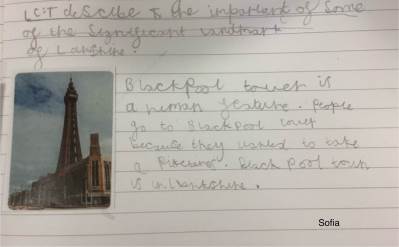 LC:T describe & the importent of Some
of the Significant landmark
of Lanshire.
Blackpool tower is
a human feature. People
go to Blackpool tower
because they wanted to take
a Pictures. black Pool town
is in Lankshire.
Sofia